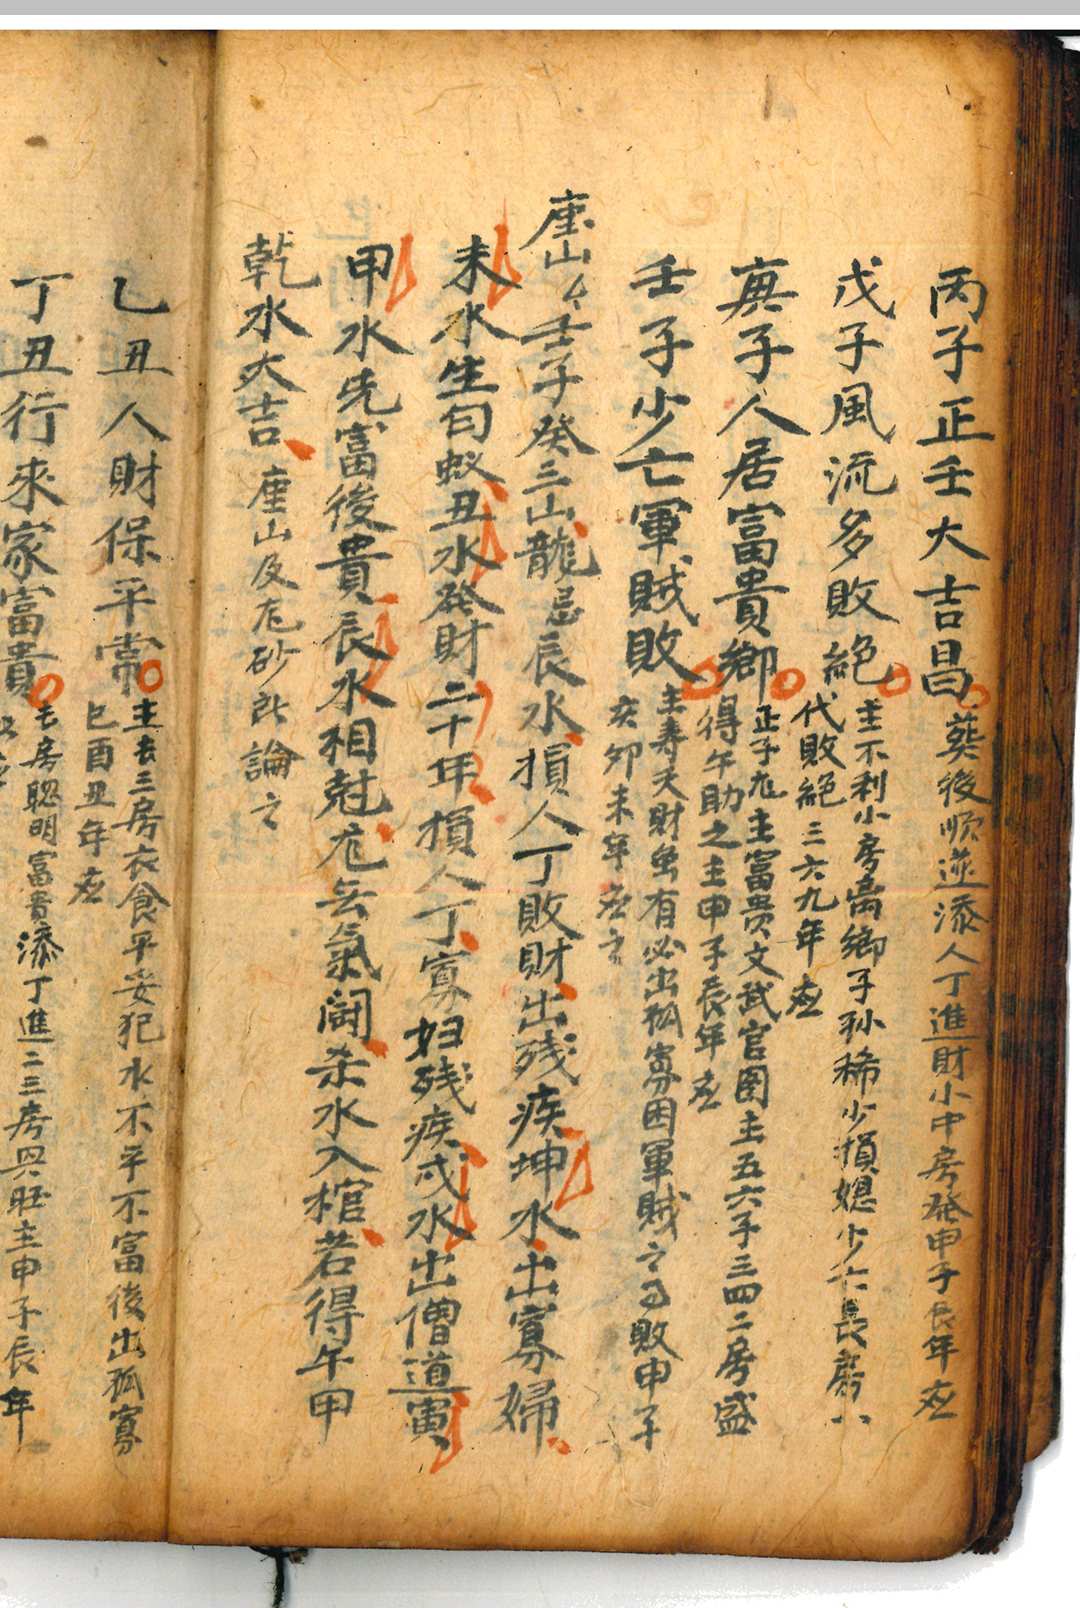 丙子正壬大吉昌
葬後順逆添人丁進財小中房發申子辰年应
戊子風流多敗絕
主不利小房离鄉子孙稀少損媳少亡長房八
代敗絕三六九年应
庚子人居富貴鄉
正子龙主富贵文武官國主五六子三四二房盛
得午助之主申子辰年应
壬子少亡軍賊敗
主寿夭財虽有必出孤寡因軍賊之敗申子
亥卯未年应之
座山壬子癸三山龍忌辰水損人丁敗財出残疾坤水出寡婦
未水生匂蚁丑水發財二十年損人丁寡妇残疾戌水出僧道寅
甲水先富後貴辰水相尅龙無氣闘杀水入棺若得午甲
乾水大吉座山及龙砂此論之
乙丑人財保平常
主长三房衣食平妥犯水不平不富後出孤寡
巳酉丑年应
丁丑行來家富貴
长房聪明富貴添丁進二三房兴旺主申子辰年